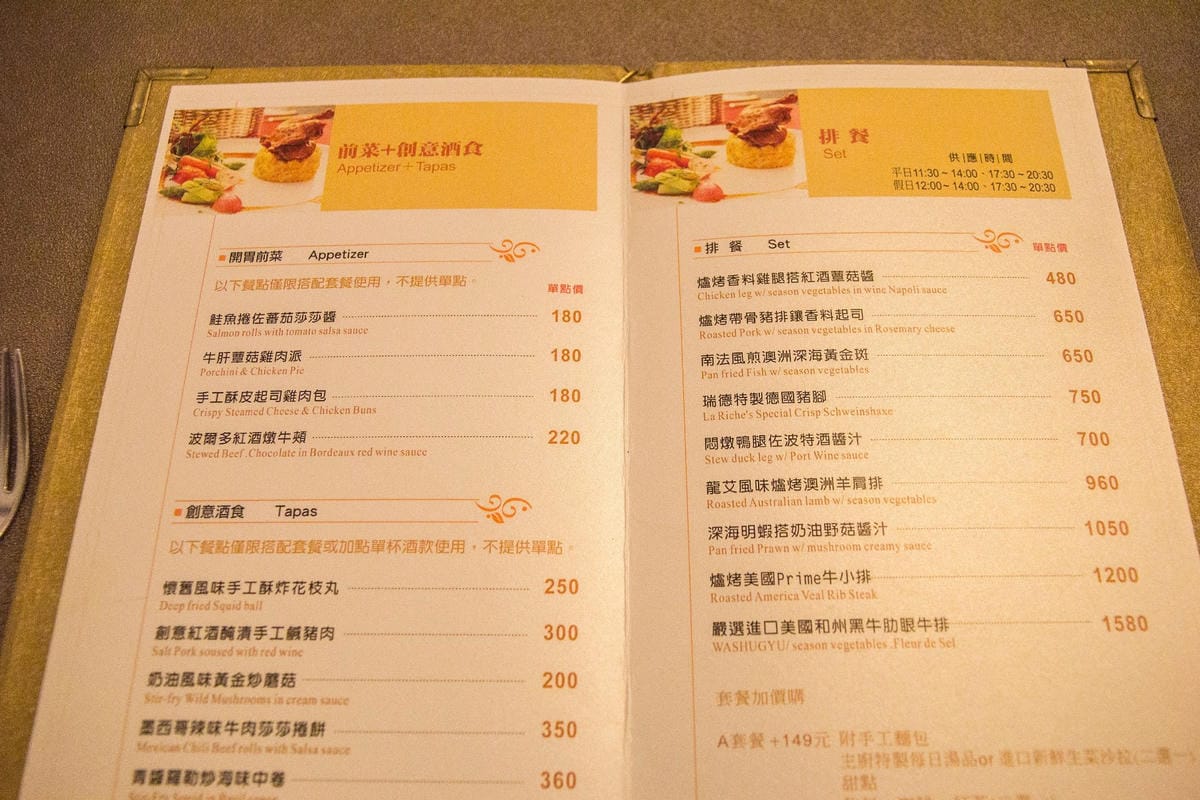 前菜+創意酒食
Appetizer+Tapas
開胃前菜 Appetizer
以下餐點僅限搭配套餐使用，不提供單點。
單點價
鮭魚捲佐蕃茄莎莎醬 180
Salmon rolls with tomato salsa sauce
牛肝蕈菇雞肉派 180
Porchini & Chicken Pie
手工酥皮起司雞肉包 180
Crispy Steamed Cheese & Chicken Buns
波爾多紅酒燉牛頰 220
Stewed Beef .Chocolate in Bordeaux red wine sauce
創意酒食 Tapas
以下餐點僅限搭配套餐或加點單杯酒款使用，不提供單點。
懷舊風味手工酥炸花枝丸 250
Deep fried Squid ball
創意紅酒醃漬手工鹹豬肉 300
Salt Pork soused with red wine
奶油風味黃金炒蘑菇 200
Stir-fry Wild Mushrooms in cream sauce
墨西哥辣味牛肉莎莎捲餅 350
Mexican Chili Beef rolls with Salsa sauce
青醬羅勒炒海味中卷 360
排 餐
Set
供|應|時|間
平日11:30 ~ 14:00、17:30 ~ 20:30
假日12:00 ~ 14:00、17:30 ~ 20:30
排 餐 Set
單點價
爐烤香料雞腿搭紅酒蕈菇醬 480
Chicken leg w/ season vegetables in wine Napoli sauce
爐烤帶骨豬排鑲香料起司 650
Roasted Pork w/ season vegetables in Rosemary cheese
南法風煎澳洲深海黃金斑 650
Pan fried Fish w/ season vegetables
瑞德特製德國豬腳 750
La Riche's Special Crisp Schweinshaxe
悶燉鴨腿佐波特酒醬汁 700
Stew duck leg w/ Port Wine sauce
龍艾風味爐烤澳洲羊肩排 960
Roasted Australian lamb w/ season vegetables
深海明蝦搭奶油野菇醬汁 1050
Pan fried Prawn w/ mushroom creamy sauce
爐烤美國Prime牛小排 1200
Roasted America Veal Rib Steak
嚴選進口美國和州黑牛肋眼牛排 1580
WASHUGYU/ season vegetables .Fleur de Sel
套餐加價購
A套餐 +149元 附手工麵包
主廚特製每日湯品or 進口新鮮生菜沙拉(二選一)
甜點